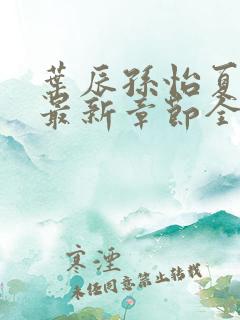 叶辰孙怡夏
最新章节全
寒湮
未经同意禁止转载